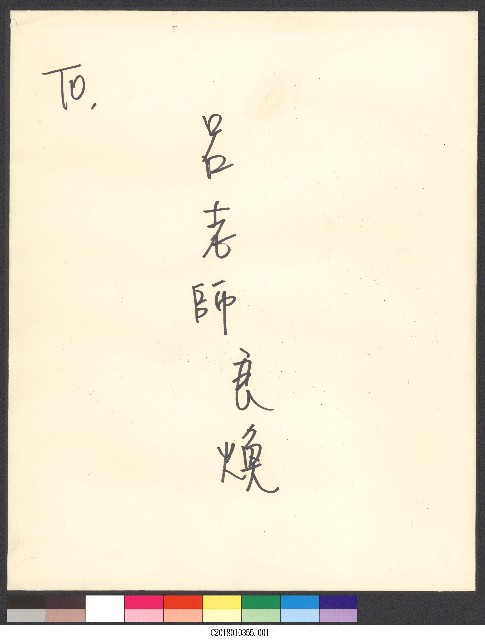 To,
呂老師良煥
C2018010355.001